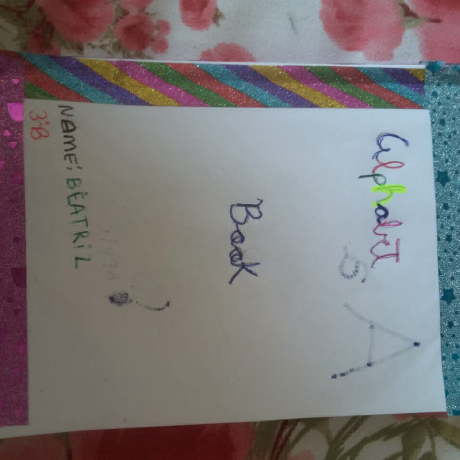 AlphabeT
A
Book
NAME: BEATRIZ
3ºB